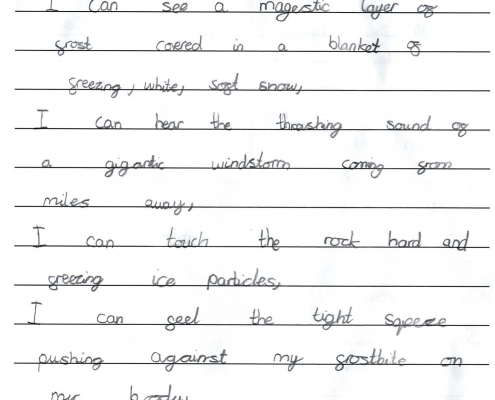 I can see a magestic layer of
frost covered in a blanket of
freezing, white, soft snow,
I can hear the thrashing sound of
a gigantic windstorm coming from
miles away,
I can touch the rock hard and
freezing ice particles,
I can feel the tight sqeeze
pushing against my frostbite on
my body